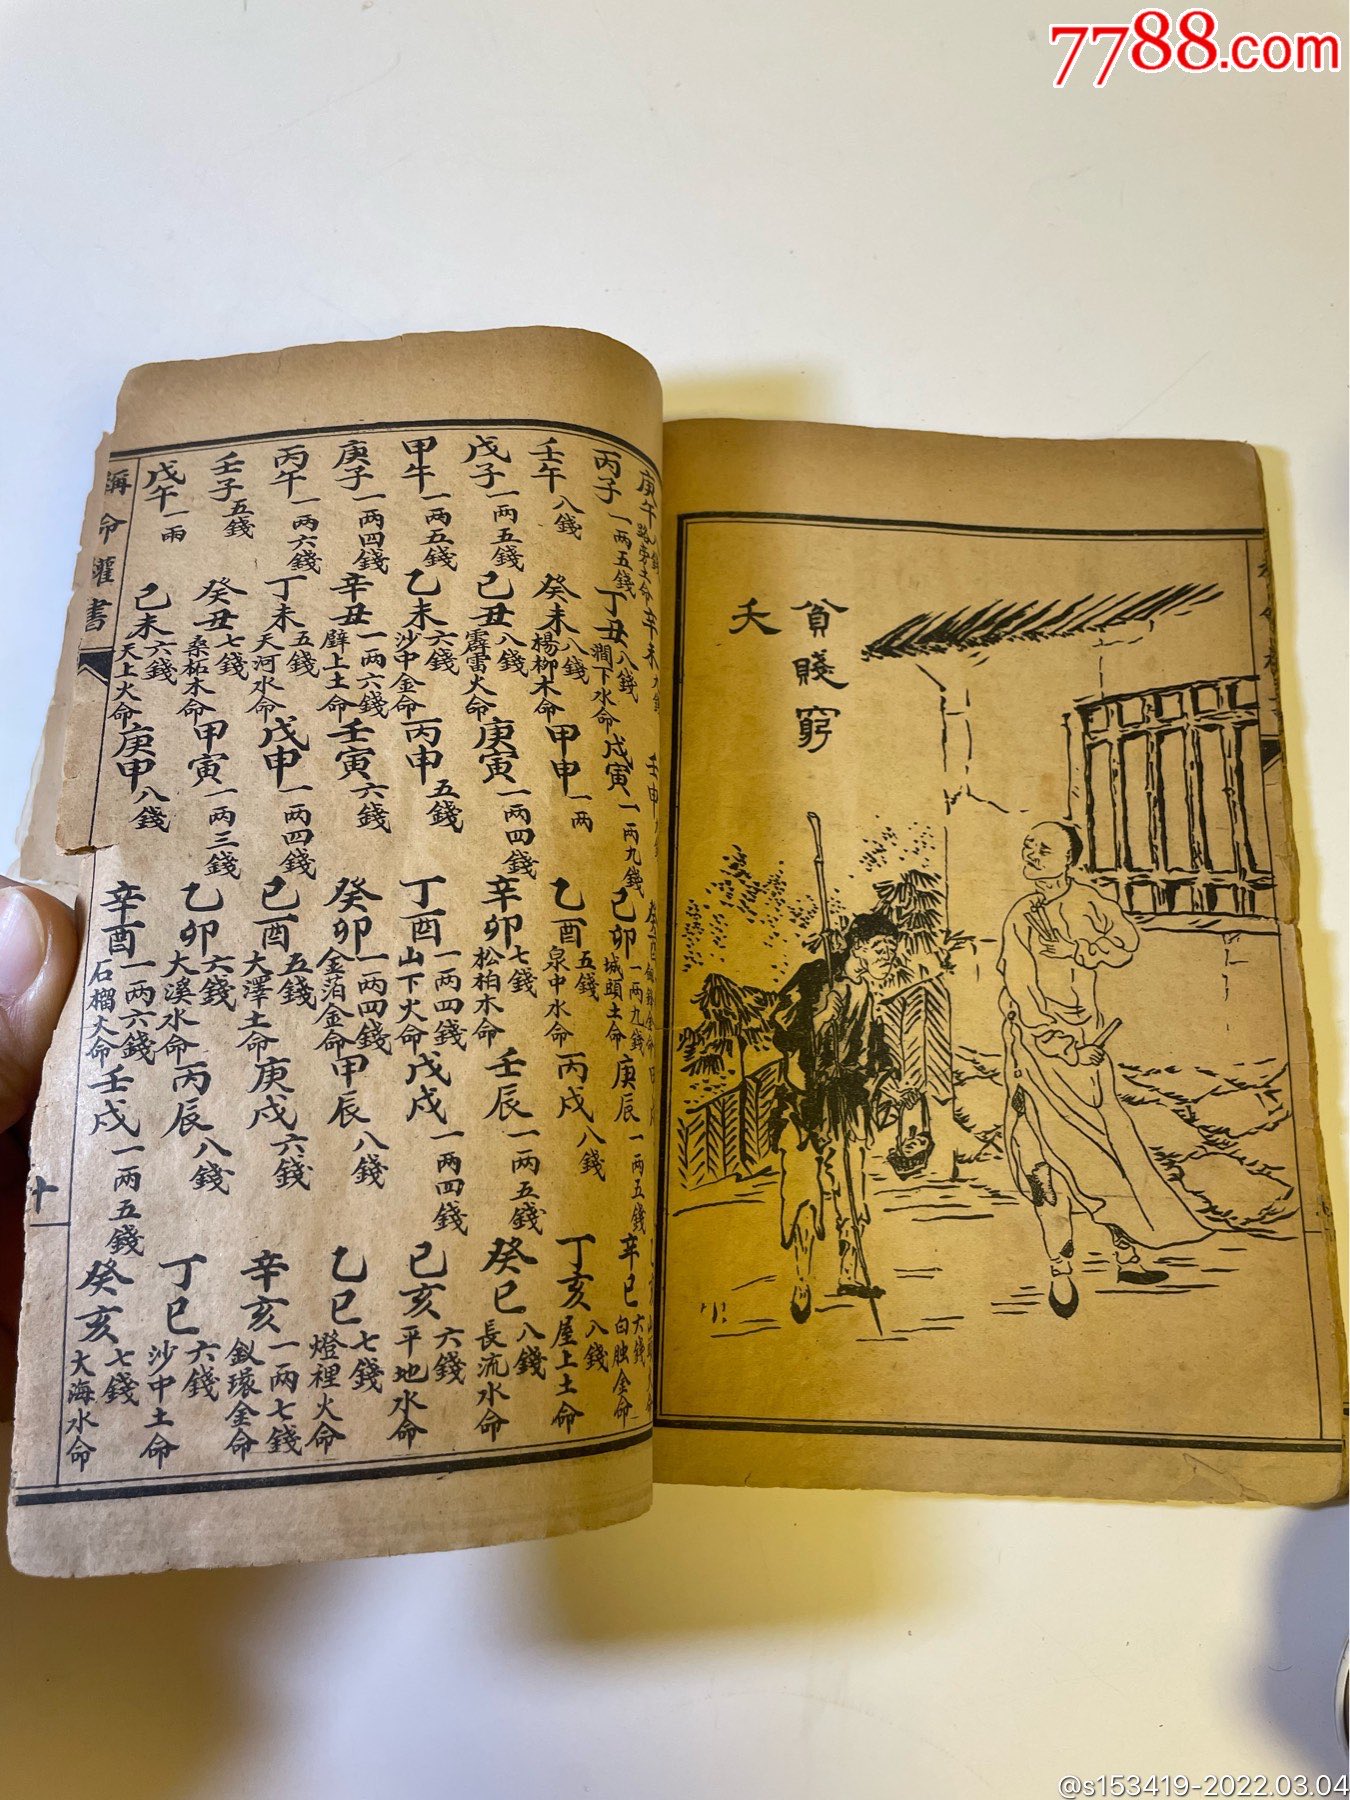 7788.com
貧賤窮
夭
庚午 路旁土命 辛未 壬申
丙子 一兩五錢 丁丑 八錢 澗下水命 戊寅 一兩九錢 己卯 一兩九錢 城頭土命 庚辰 一兩五錢 辛巳 六錢 白蝕金命
壬午 八錢 癸未 八錢 楊柳木命 甲申 一兩 乙酉 五錢 泉中水命 丙戌 八錢 丁亥 八錢 屋上土命
戊子 一兩五錢 己丑 八錢 霹雷火命 庚寅 一兩四錢 辛卯 七錢 松柏木命 壬辰 一兩五錢 癸巳 八錢 長流水命
甲午 一兩五錢 乙未 六錢 沙中金命 丙申 五錢 丁酉 一兩四錢 山下火命 戊戌 一兩四錢 己亥 六錢 平地水命
庚子 一兩四錢 辛丑 一兩六錢 壁上土命 壬寅 六錢 癸卯 一兩四錢 金泊金命 甲辰 八錢 乙巳 七錢 燈裡火命
丙午 一兩六錢 丁未 五錢 天河水命 戊申 一兩四錢 己酉 五錢 大澤土命 庚戌 六錢 辛亥 一兩七錢 釵環金命
壬子 五錢 癸丑 七錢 桑柘木命 甲寅 一兩三錢 乙卯 六錢 大溪水命 丙辰 八錢 丁巳 六錢 沙中土命
戊午 一兩 己未 六錢 天上火命 庚申 八錢 辛酉 一兩六錢 石榴火命 壬戌 一兩五錢 癸亥 七錢 大海水命
稱命灌書
十
@s153419-2022.03.04